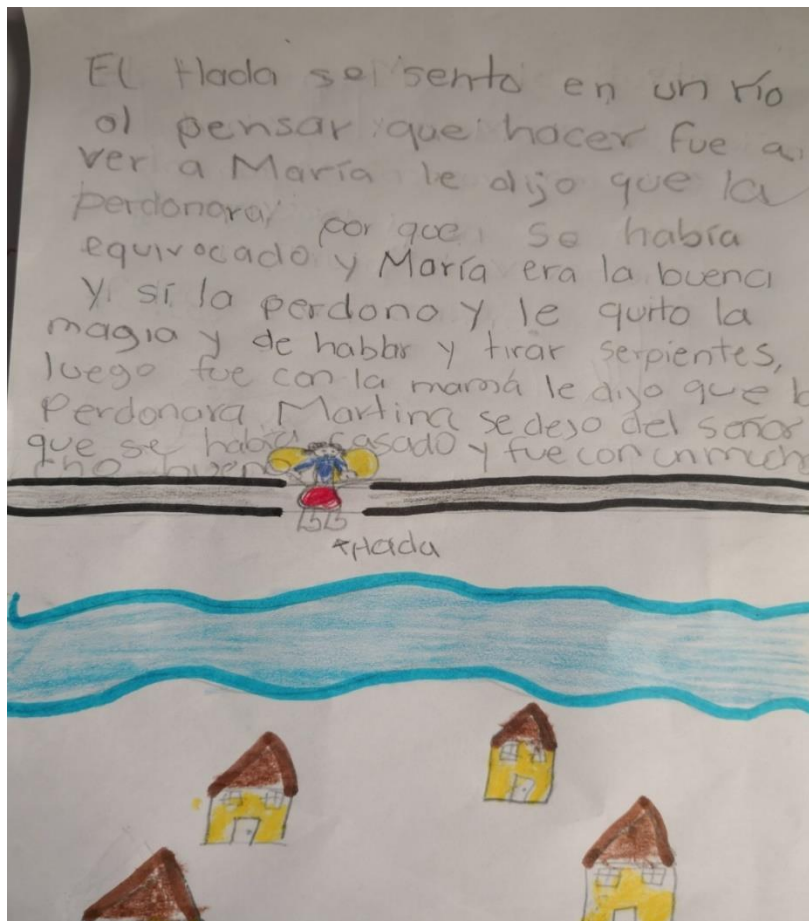 El Hada se sento en un río
al pensar que hacer fue a
ver a María le dijo que la
perdonara por que se había
equivocado y María era la buena
y si la perdono y le quito la
magia y de hablar y tirar serpientes,
luego fue con la mamá le dijo que l
Perdonara Martina se dejo del señor
que se había casado y fue con un much
cho bueno
Hada